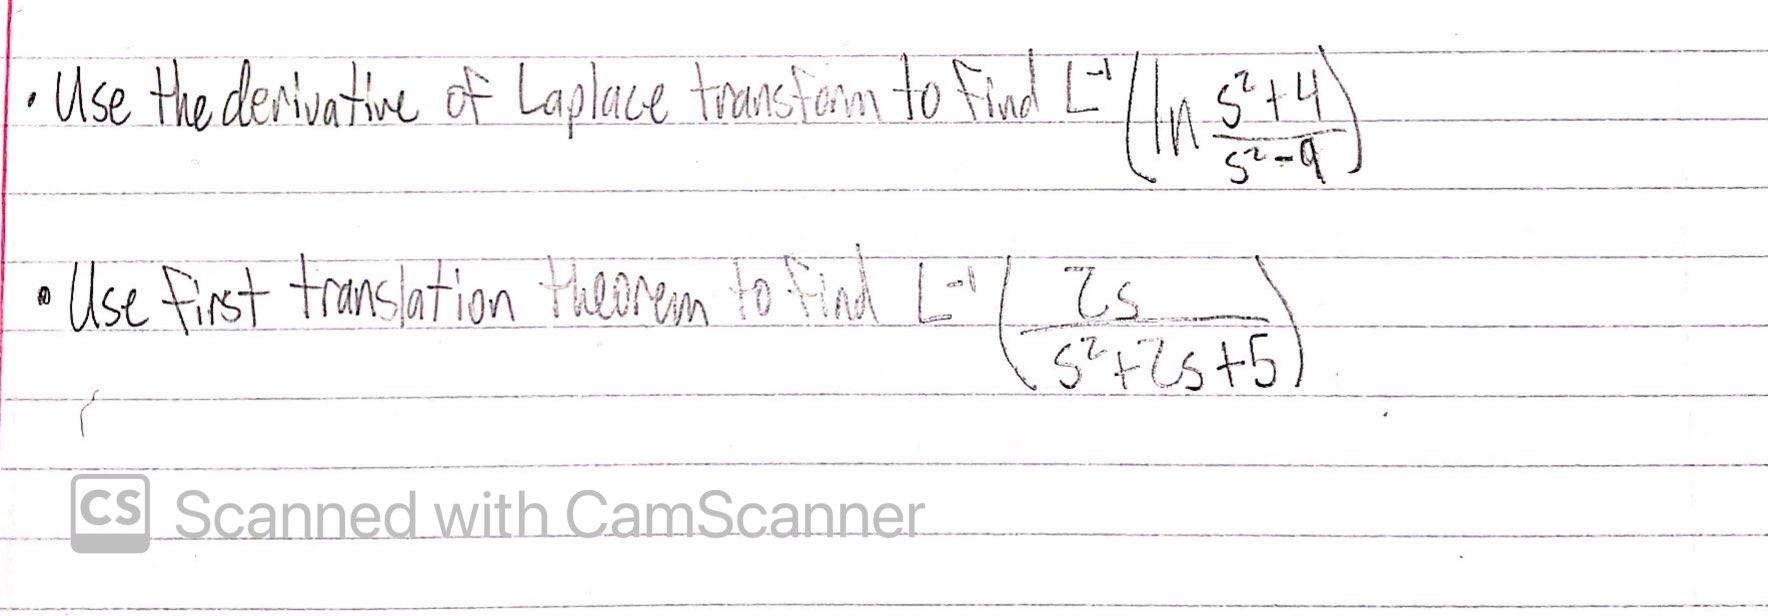 • Use the derivative of Laplace transform to find L⁻¹(ln (s²+4)/(s²-9))
• Use first translation theorem to find L⁻¹(2s/(s²+2s+5))
CS Scanned with CamScanner